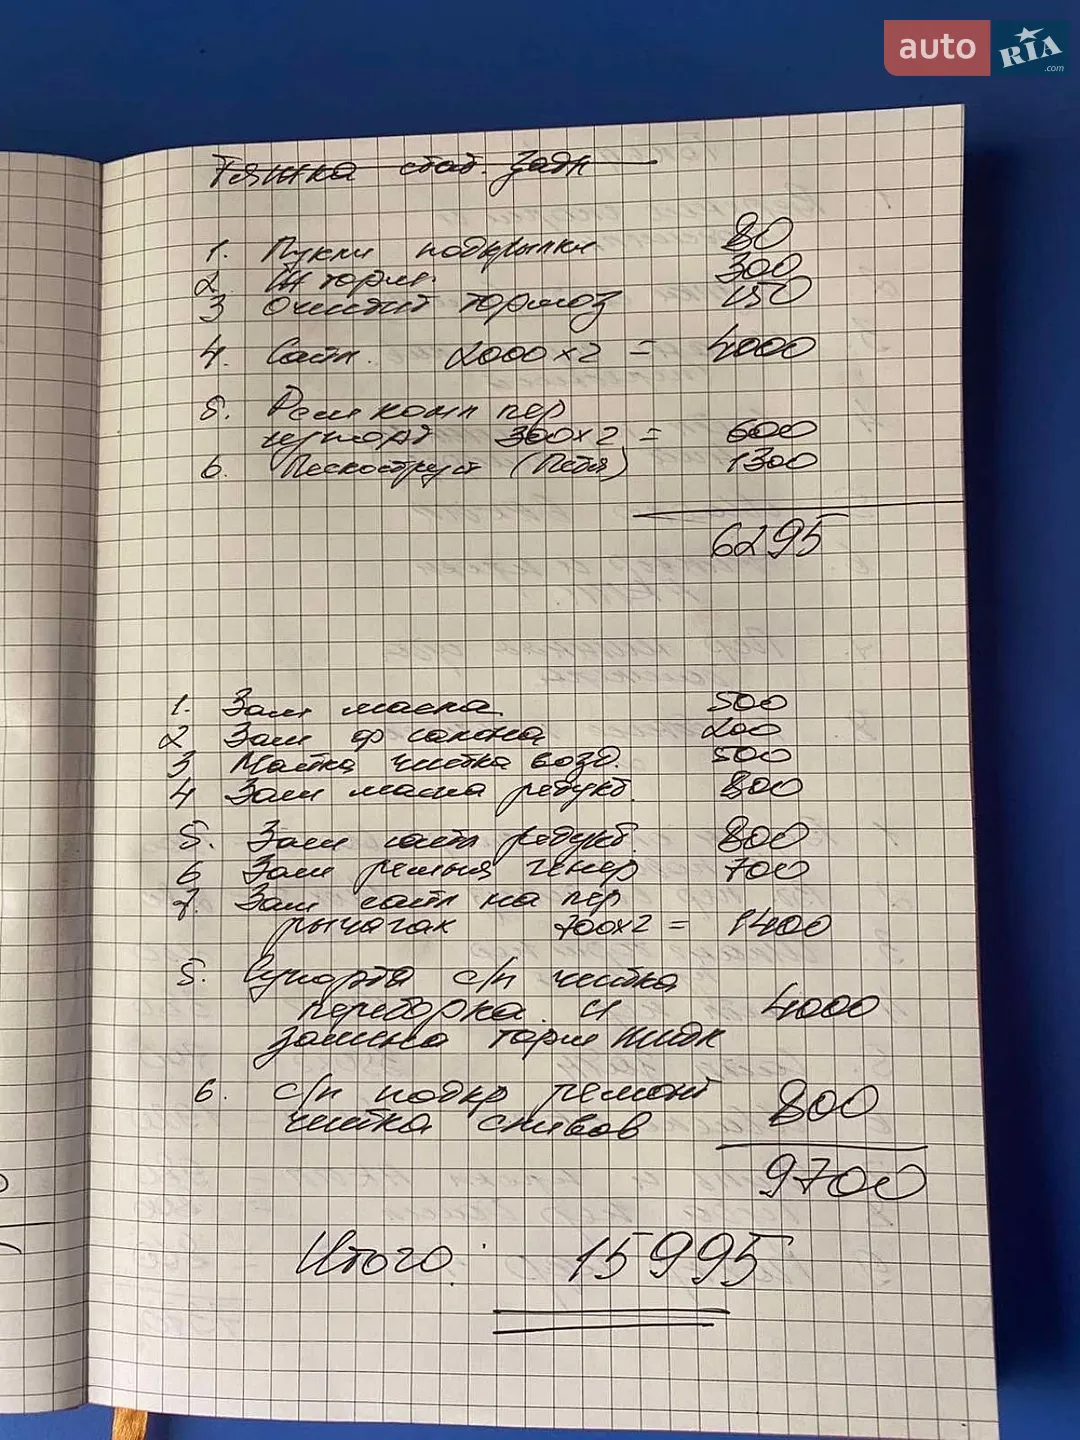 auto RIA .com
Тяжка стаб. задн
1. Пукли подкрылки 80
2. Шт торм. 300
3 Очистит тормоз 150
4. Сайл. 2000x2 = 4000
5. Рем комп пер
суппорт 300x2 = 600
6. Пескоструй (Петя) 1300
6295
1. Зам масла 500
2 Зам ф салона 200
3 Мойка чистка возд. 500
4 Зам масла редукт. 800
5. Зам сайл редукт. 800
6 Зам ремня генер 700
7. Зам сайл на пер
рычагах 700x2 = 1400
5. Суппорта с/п чистка
переборка и 4000
замена торм жидк
6. с/п подкр ремонт
чистка сливов 800
9700
Итого: 15995